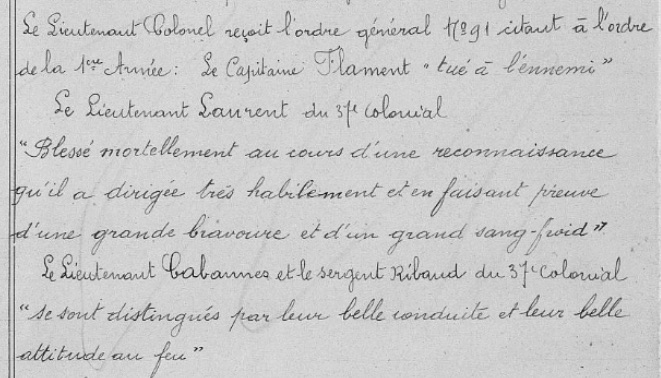 Le Lieutenant Colonel reçoit l'ordre général N°91 citant à l'ordre
de la 1ère Armée : Le Capitaine Flament "tué à l'ennemi"
Le Lieutenant Laurent du 37e Colonial
"Blessé mortellement au cours d'une reconnaissance
qu'il a dirigée très habilement et en faisant preuve
d'une grande bravoure et d'un grand sang-froid"
Le Lieutenant Cabannes et le sergent Ribaud du 37e Colonial
"se sont distingués par leur belle conduite et leur belle
attitude au feu"